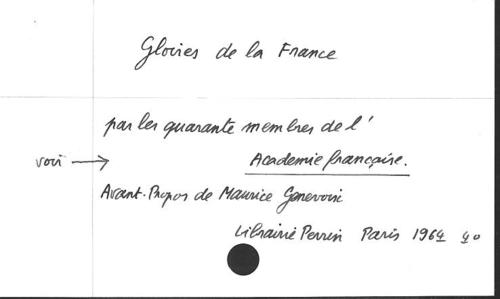 Gloires de la France
par les quarante membres de l'
voir → Académie française.
Avant-Propos de Maurice Genevoix
Librairie Perrin Paris 1964 40